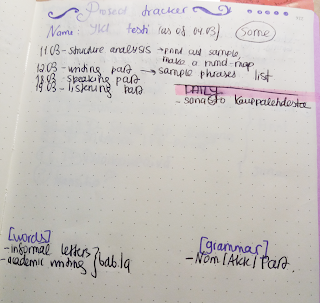 Project tracker
Name: YKI testi (as of 04.03) Some
11.03 - structure analysis → find out sample,
make a mind-map
12.03 - writing part → sample phrases list
18.03 - speaking part
19.03 - listening part
DAILY
- sanasto Kauppalehdestä
[words]
- informal letters
- academic writing
[grammar]
- Nom/Akk/Part.